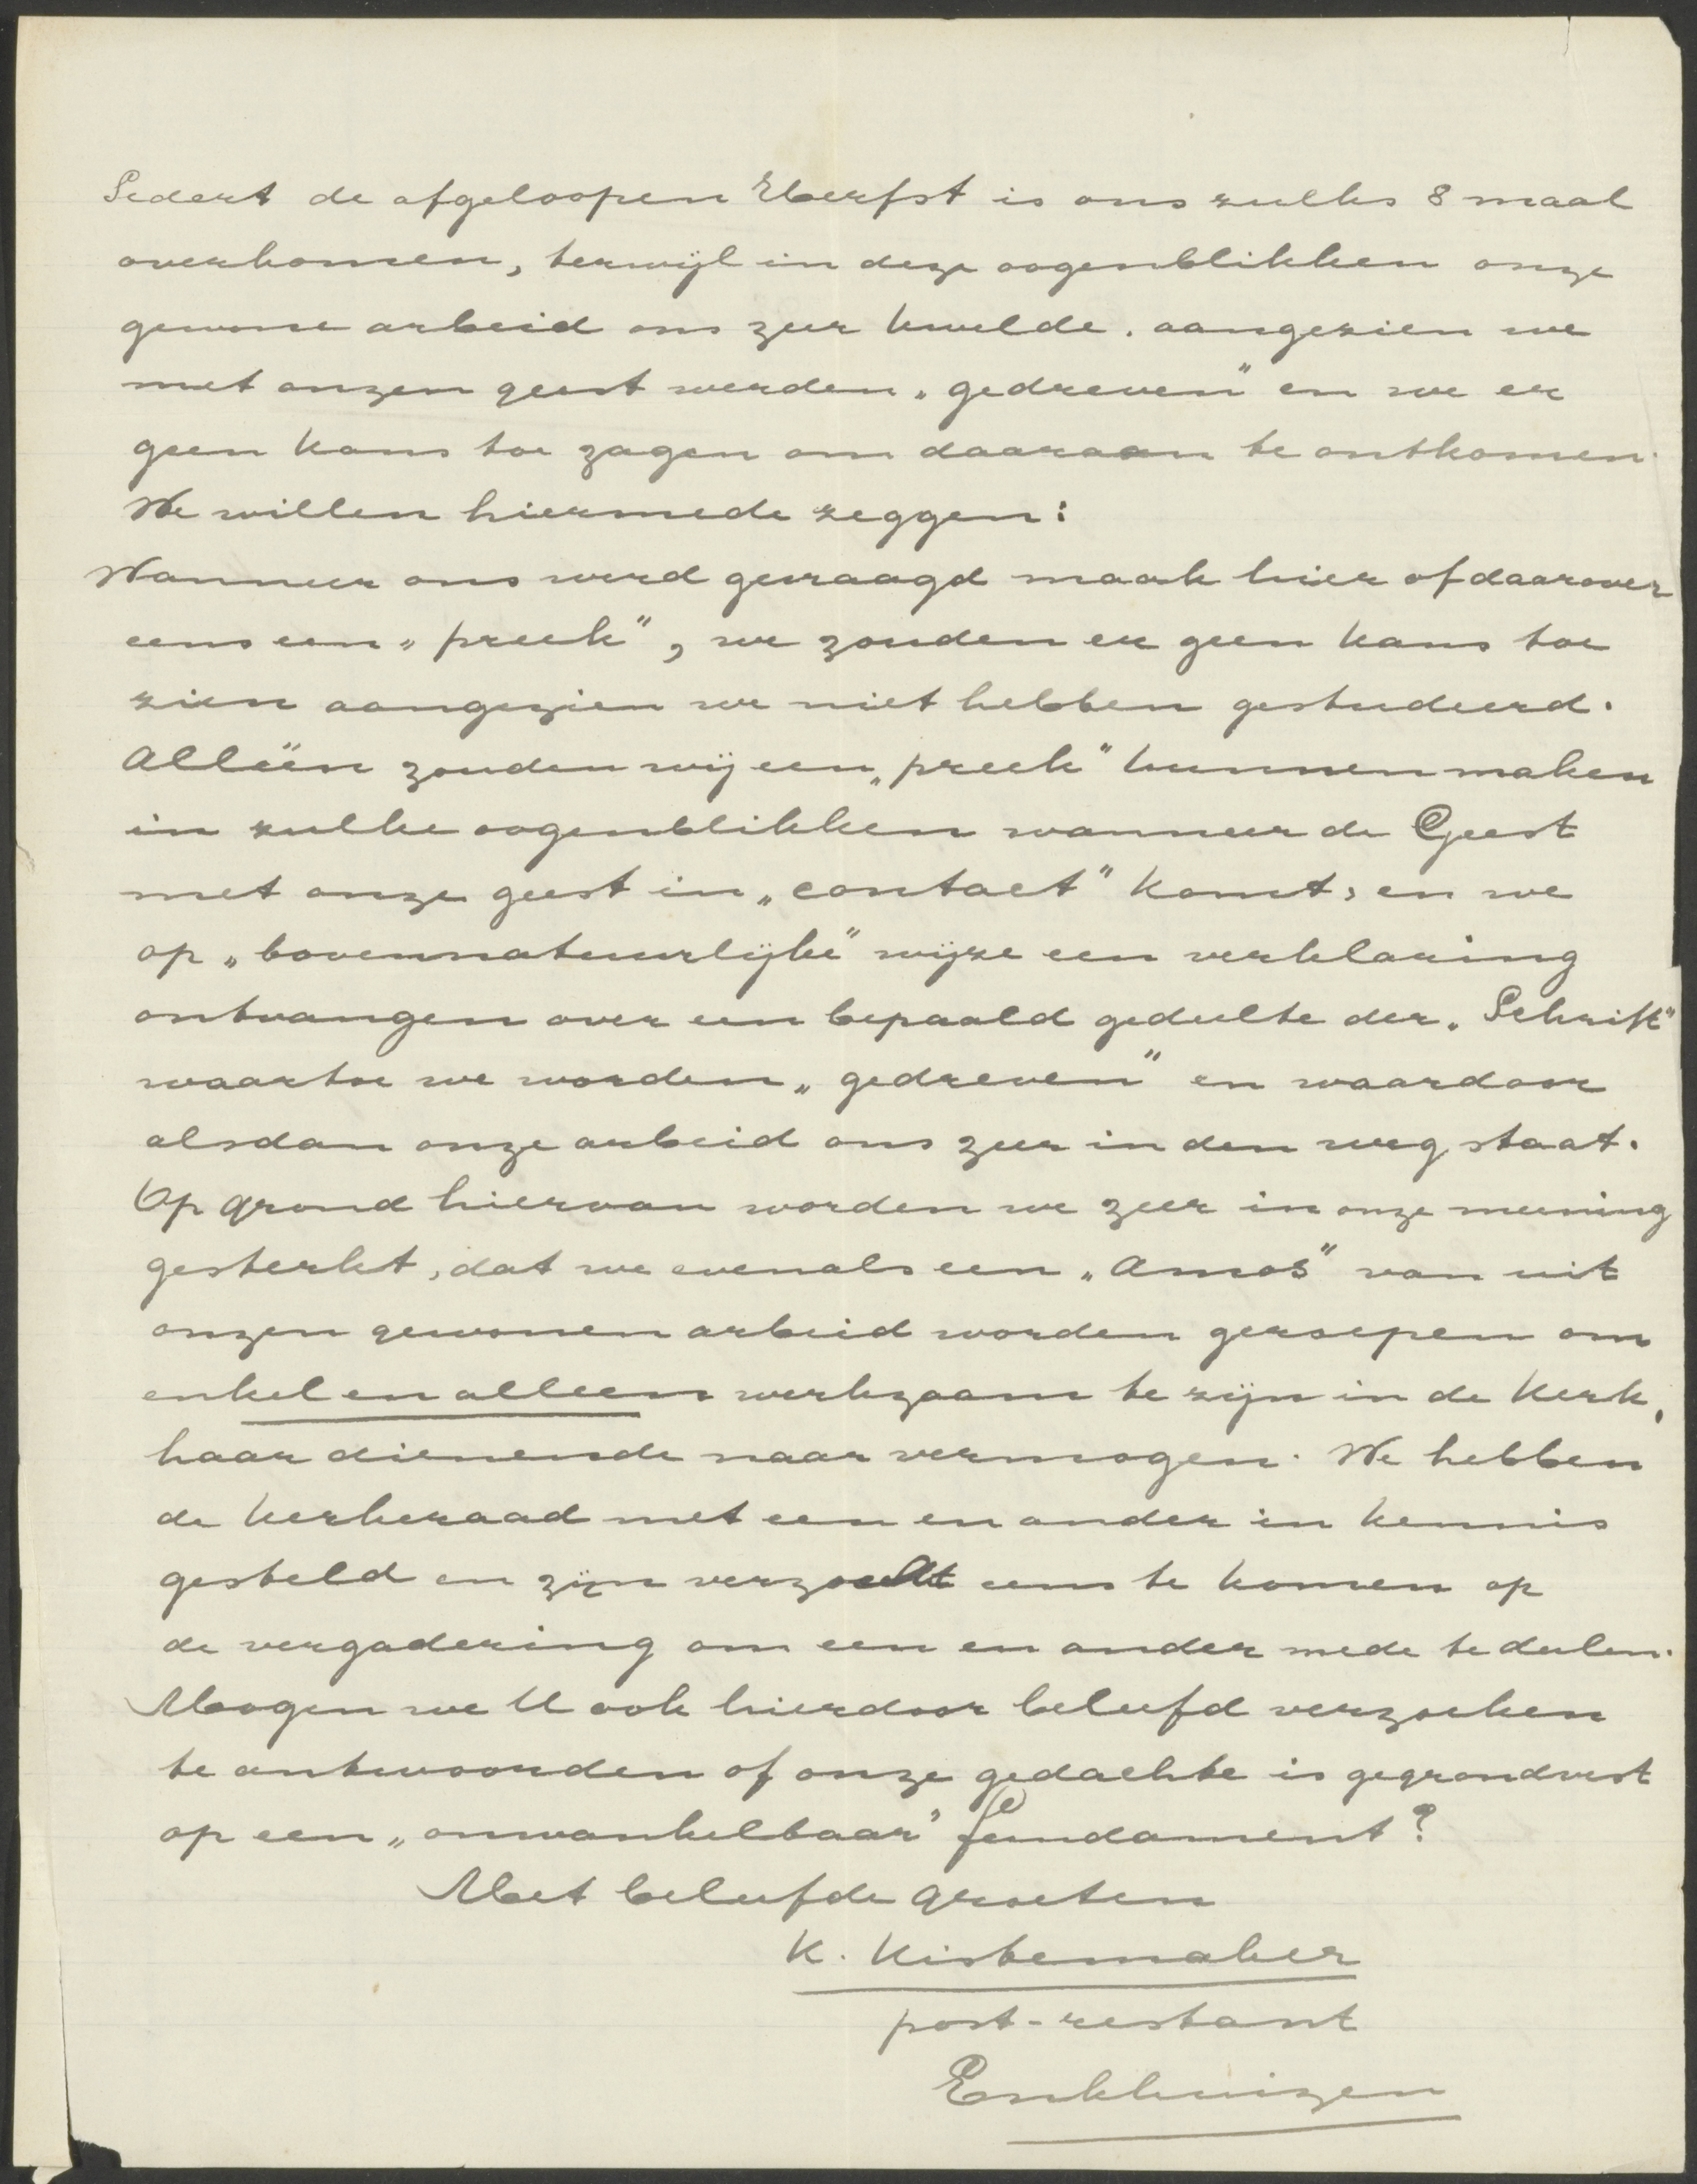 Sedert de afgeloopen Herfst is ons zulks 8 maal
overkomen, terwijl in deze oogenblikken onze
gewone arbeid ons zeer kwelde. aangezien we
met onzen geest werden „gedreven" en we er
geen kans toe zagen om daaraan te ontkomen.
We willen hiermede zeggen:
Wanneer ons werd gevraagd maak hier of daarover
eens een „preek", we zouden er geen kans toe
zien aangezien we niet hebben gestudeerd.
Alleën zouden wij een „preek" kunnen maken
in zulke oogenblikken wanneer de Geest
met onze geest in „contact" komt, en we
op „bovennatuurlijke" wijze een verklaring
ontvangen over een bepaald gedeelte der „Schrift"
waartoe we worden „gedreven" en waardoor
alsdan onze arbeid ons zeer in den weg staat.
Op grond hiervan worden we zeer in onze meening
gesterkt, dat we evenals een „Amos" van uit
onzen gewonen arbeid worden geroepen om
enkel en alleen werkzaam te zijn in de Kerk,
haar dienende naar vermogen. We hebben
de kerkeraad met een en ander in kennis
gesteld en zijn verzocht eens te komen op
de vergadering om een en ander mede te deelen.
Moogen we U ook hierdoor beleefd verzoeken
te antwoorden of onze gedachte is gegrondvest
op een „onwankelbaar" fundament?
Met beleefde groeten
K. Kistemaker
post-restant
Enkhuizen